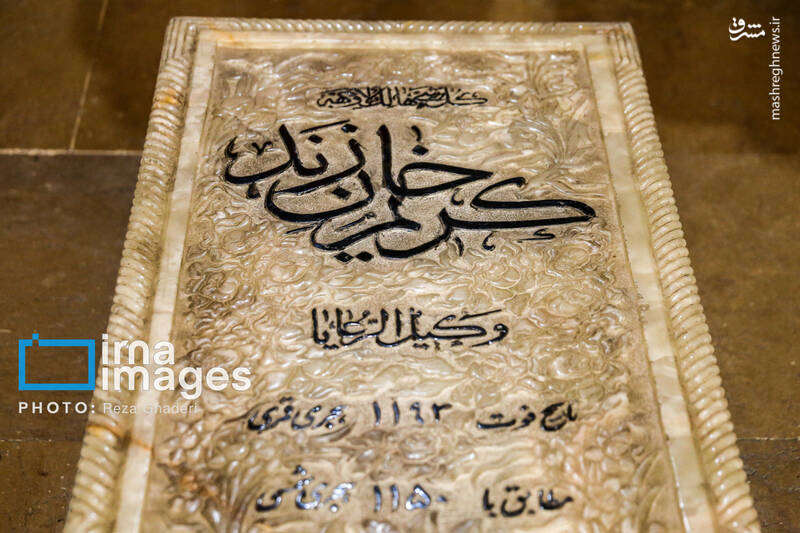 کریم خان زند
وکیل الرعایا
تاریخ فوت ۱۱۹۳ هجری قمری
مطابق با ۱۱۵۰ هجری شمسی
irna
images
PHOTO: Reza Ghaderi
مشرق
mashreghnews.ir